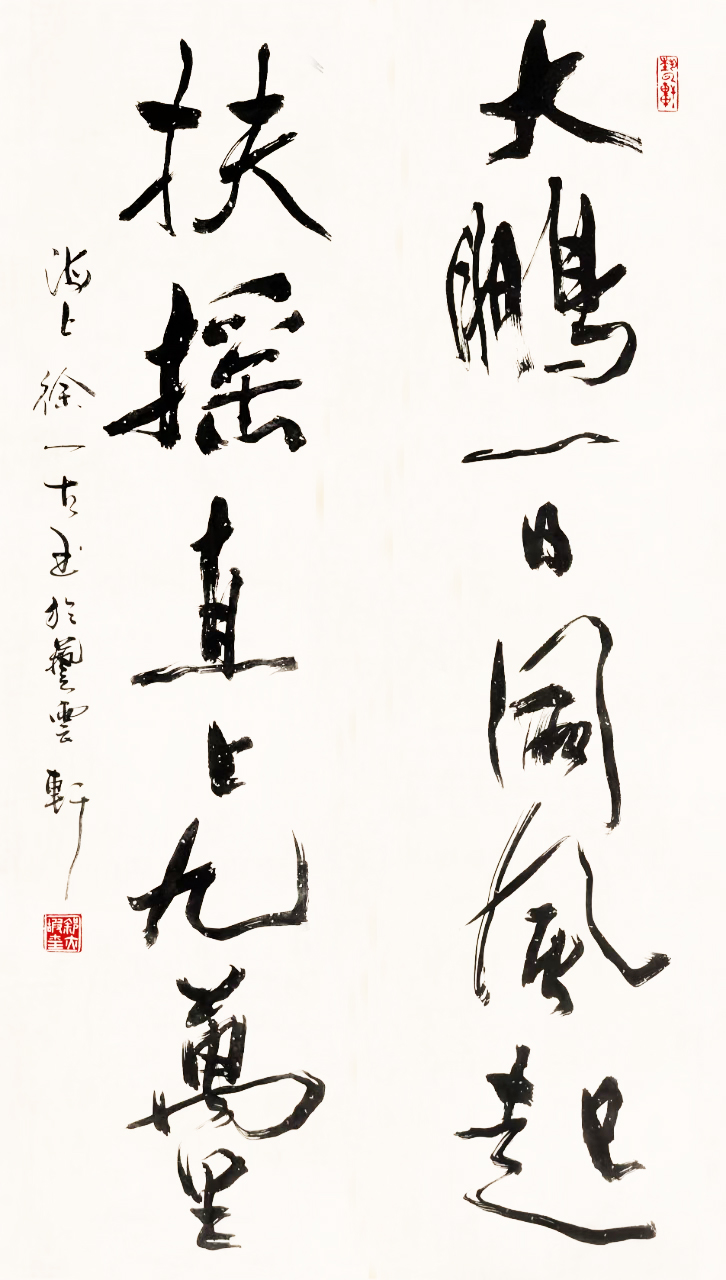 大鹏一日同風起
扶摇直上九萬里
海上徐一古書於藝雲軒